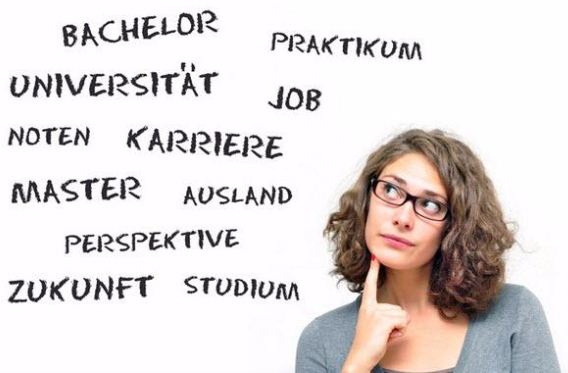 BACHELOR
PRAKTIKUM
UNIVERSITÄT
JOB
NOTEN KARRIERE
MASTER AUSLAND
PERSPEKTIVE
ZUKUNFT STUDIUM